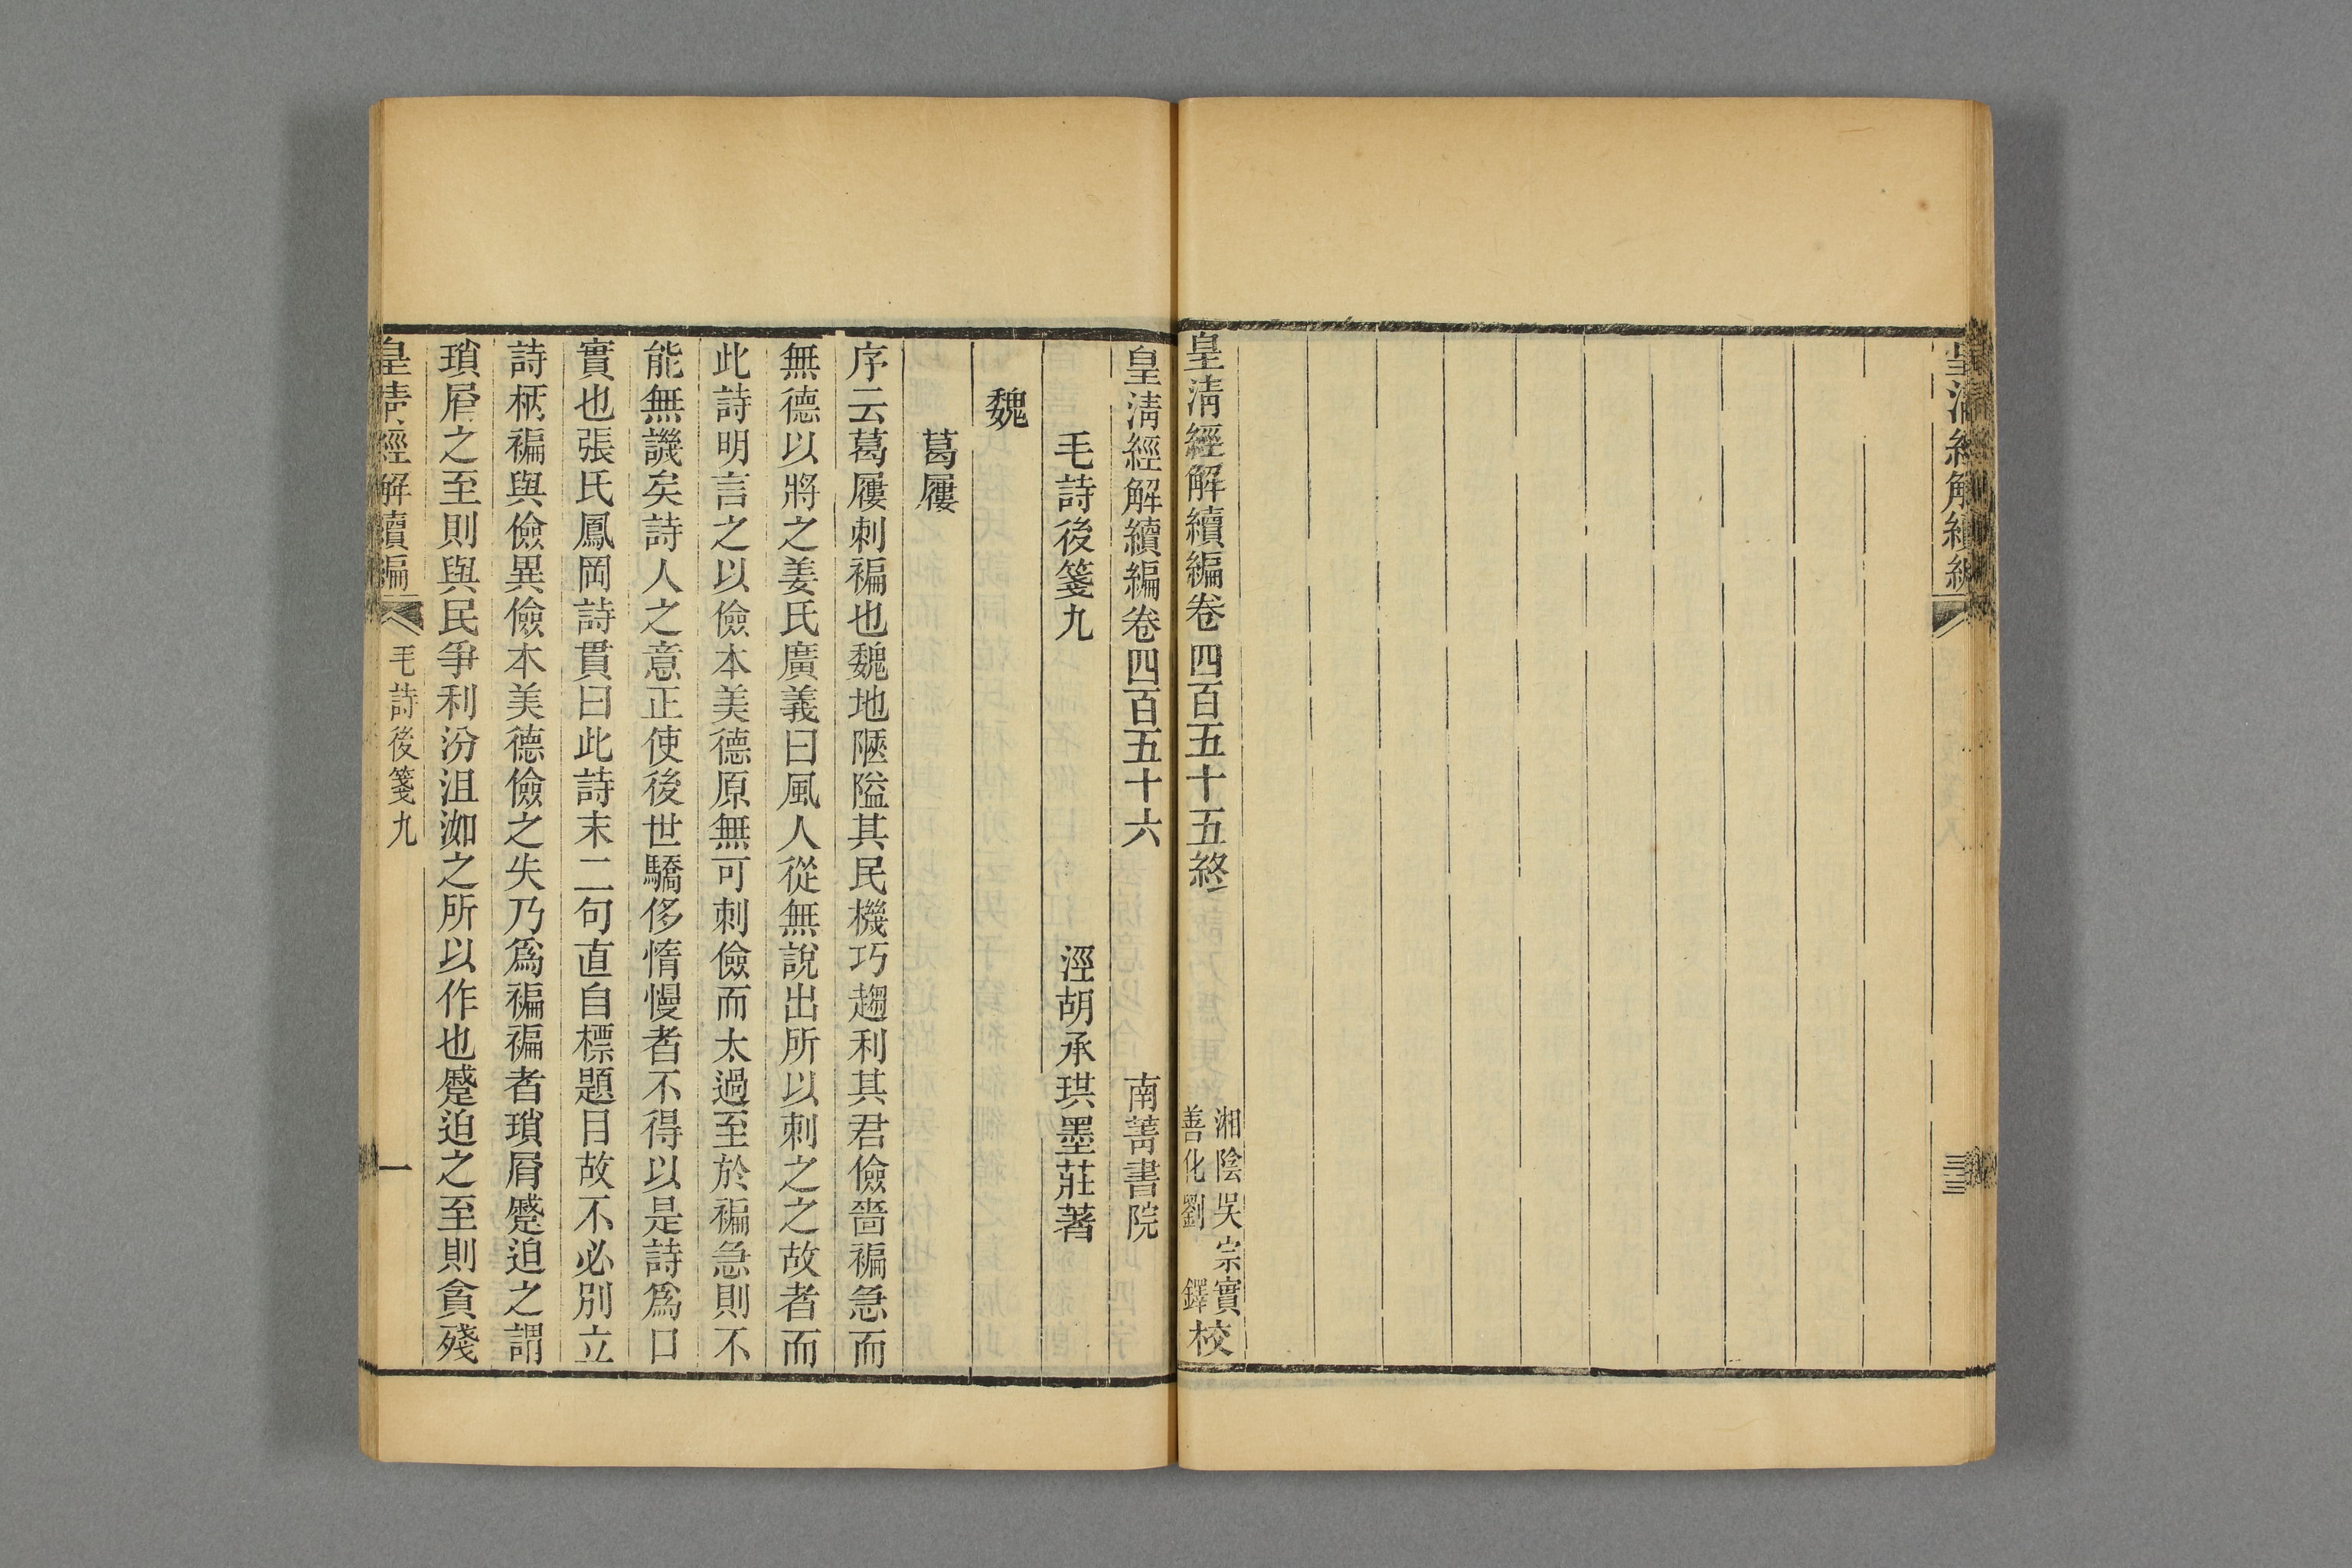 皇清經解續編
皇清經解續編卷四百五十五終
湘陰吳宗實
善化劉 鐸
校
皇清經解續編卷四百五十六 南菁書院
毛詩後箋九 涇胡承珙墨莊著
魏
葛屨
序云葛屨刺褊也魏地陿隘其民機巧趨利其君儉嗇褊急而
無德以將之姜氏廣義曰風人從無說出所以刺之之故者而
此詩明言之以儉本美德原無可刺儉而太過至於褊急則不
能無譏矣詩人之意正使後世驕侈惰慢者不得以是詩爲口
實也張氏鳳岡詩貫曰此詩末二句直自標題目故不必別立
詩柄褊與儉異儉本美德儉之失乃爲褊褊者瑣屑蹙迫之謂
瑣屑之至則與民爭利汾沮洳之所以作也蹙迫之至則貪殘
皇清經解續編 毛詩後箋九 一